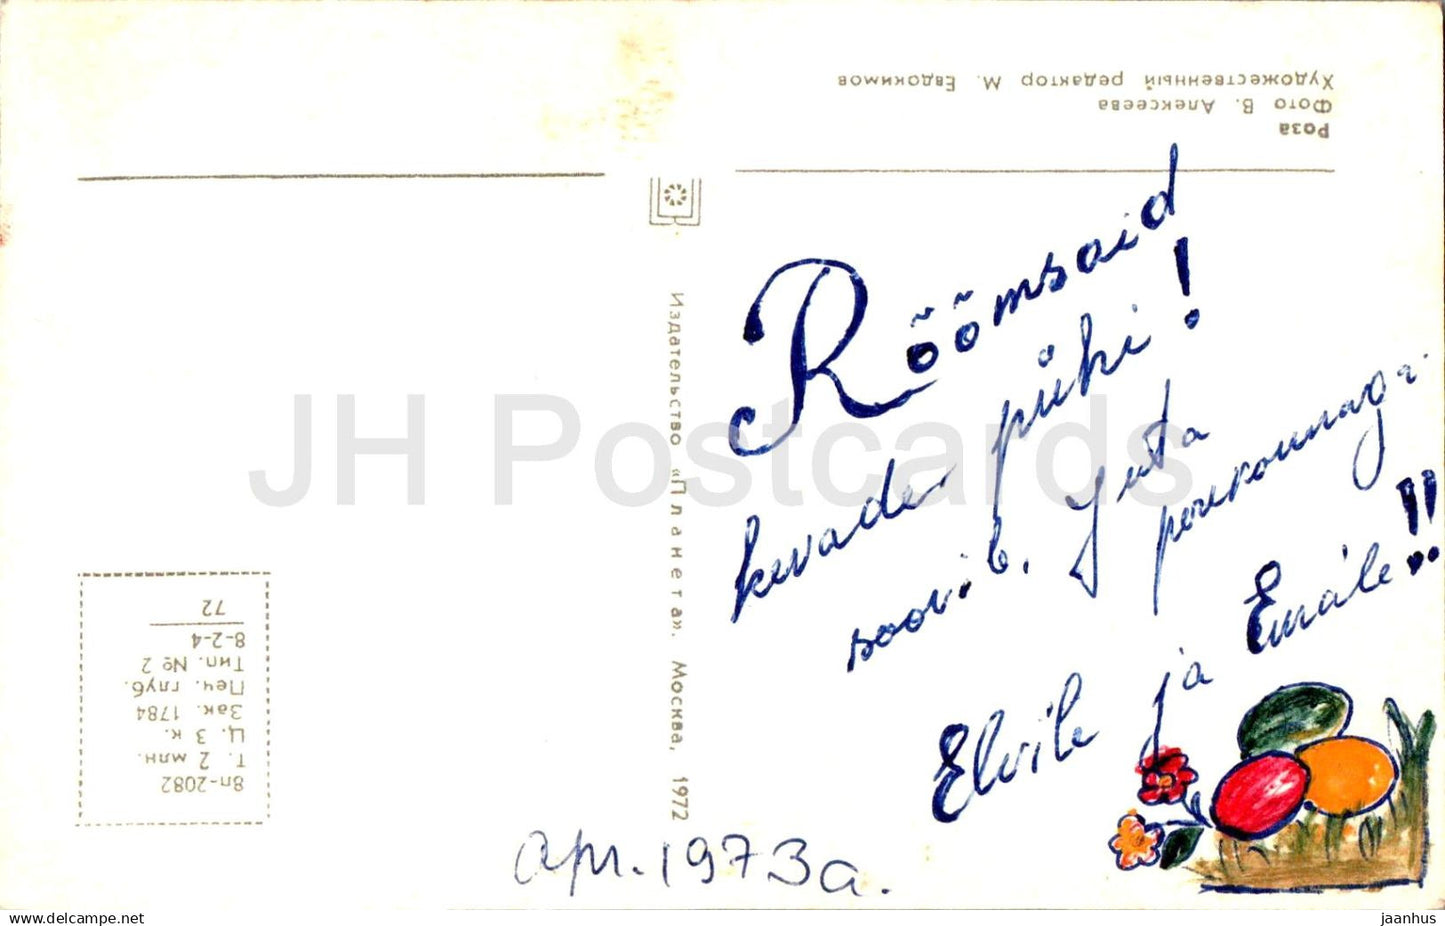 Роза
Фото В. Алексеева
Художественный редактор М. Евдокимов
Издательство «Планета». Москва, 1972
8п-2082
Т. 2 млн.
Ц. 3 к.
Зак. 1784
Печ. глуб.
Тип. № 2
8-2-4
72
Rõõmsaid
kevade pühi!
soovib. Juta
perekonnaga
Elvile ja Emále!!
apr. 1973a.
JH Postcards
https://www.ebay.com/usr/jaanhus